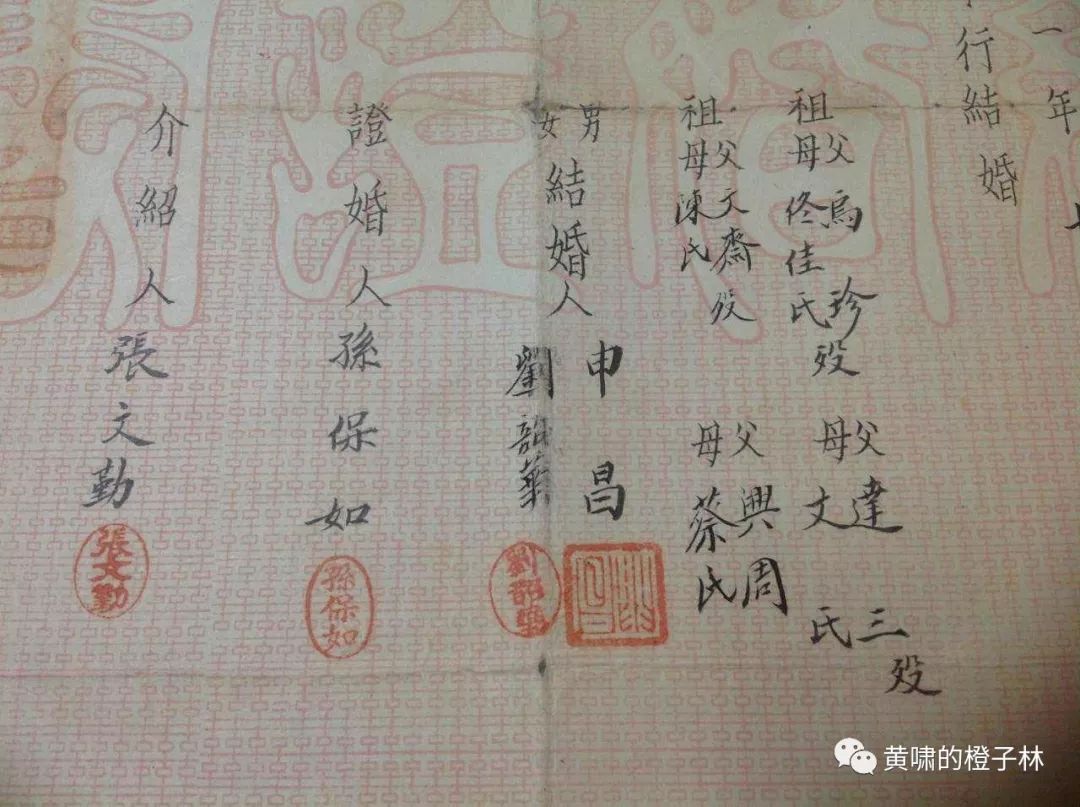 一年 七
行結婚
祖父烏珍歿 父達三歿
祖母佟佳氏 母文氏
祖父文齋歿 父興周
祖母陳氏 母蔡氏
男女結婚人 申昌 劉韶華
證婚人 孫保如
介紹人 張文勤
劉韶華
孫保如
張文勤
黄啸的橙子林